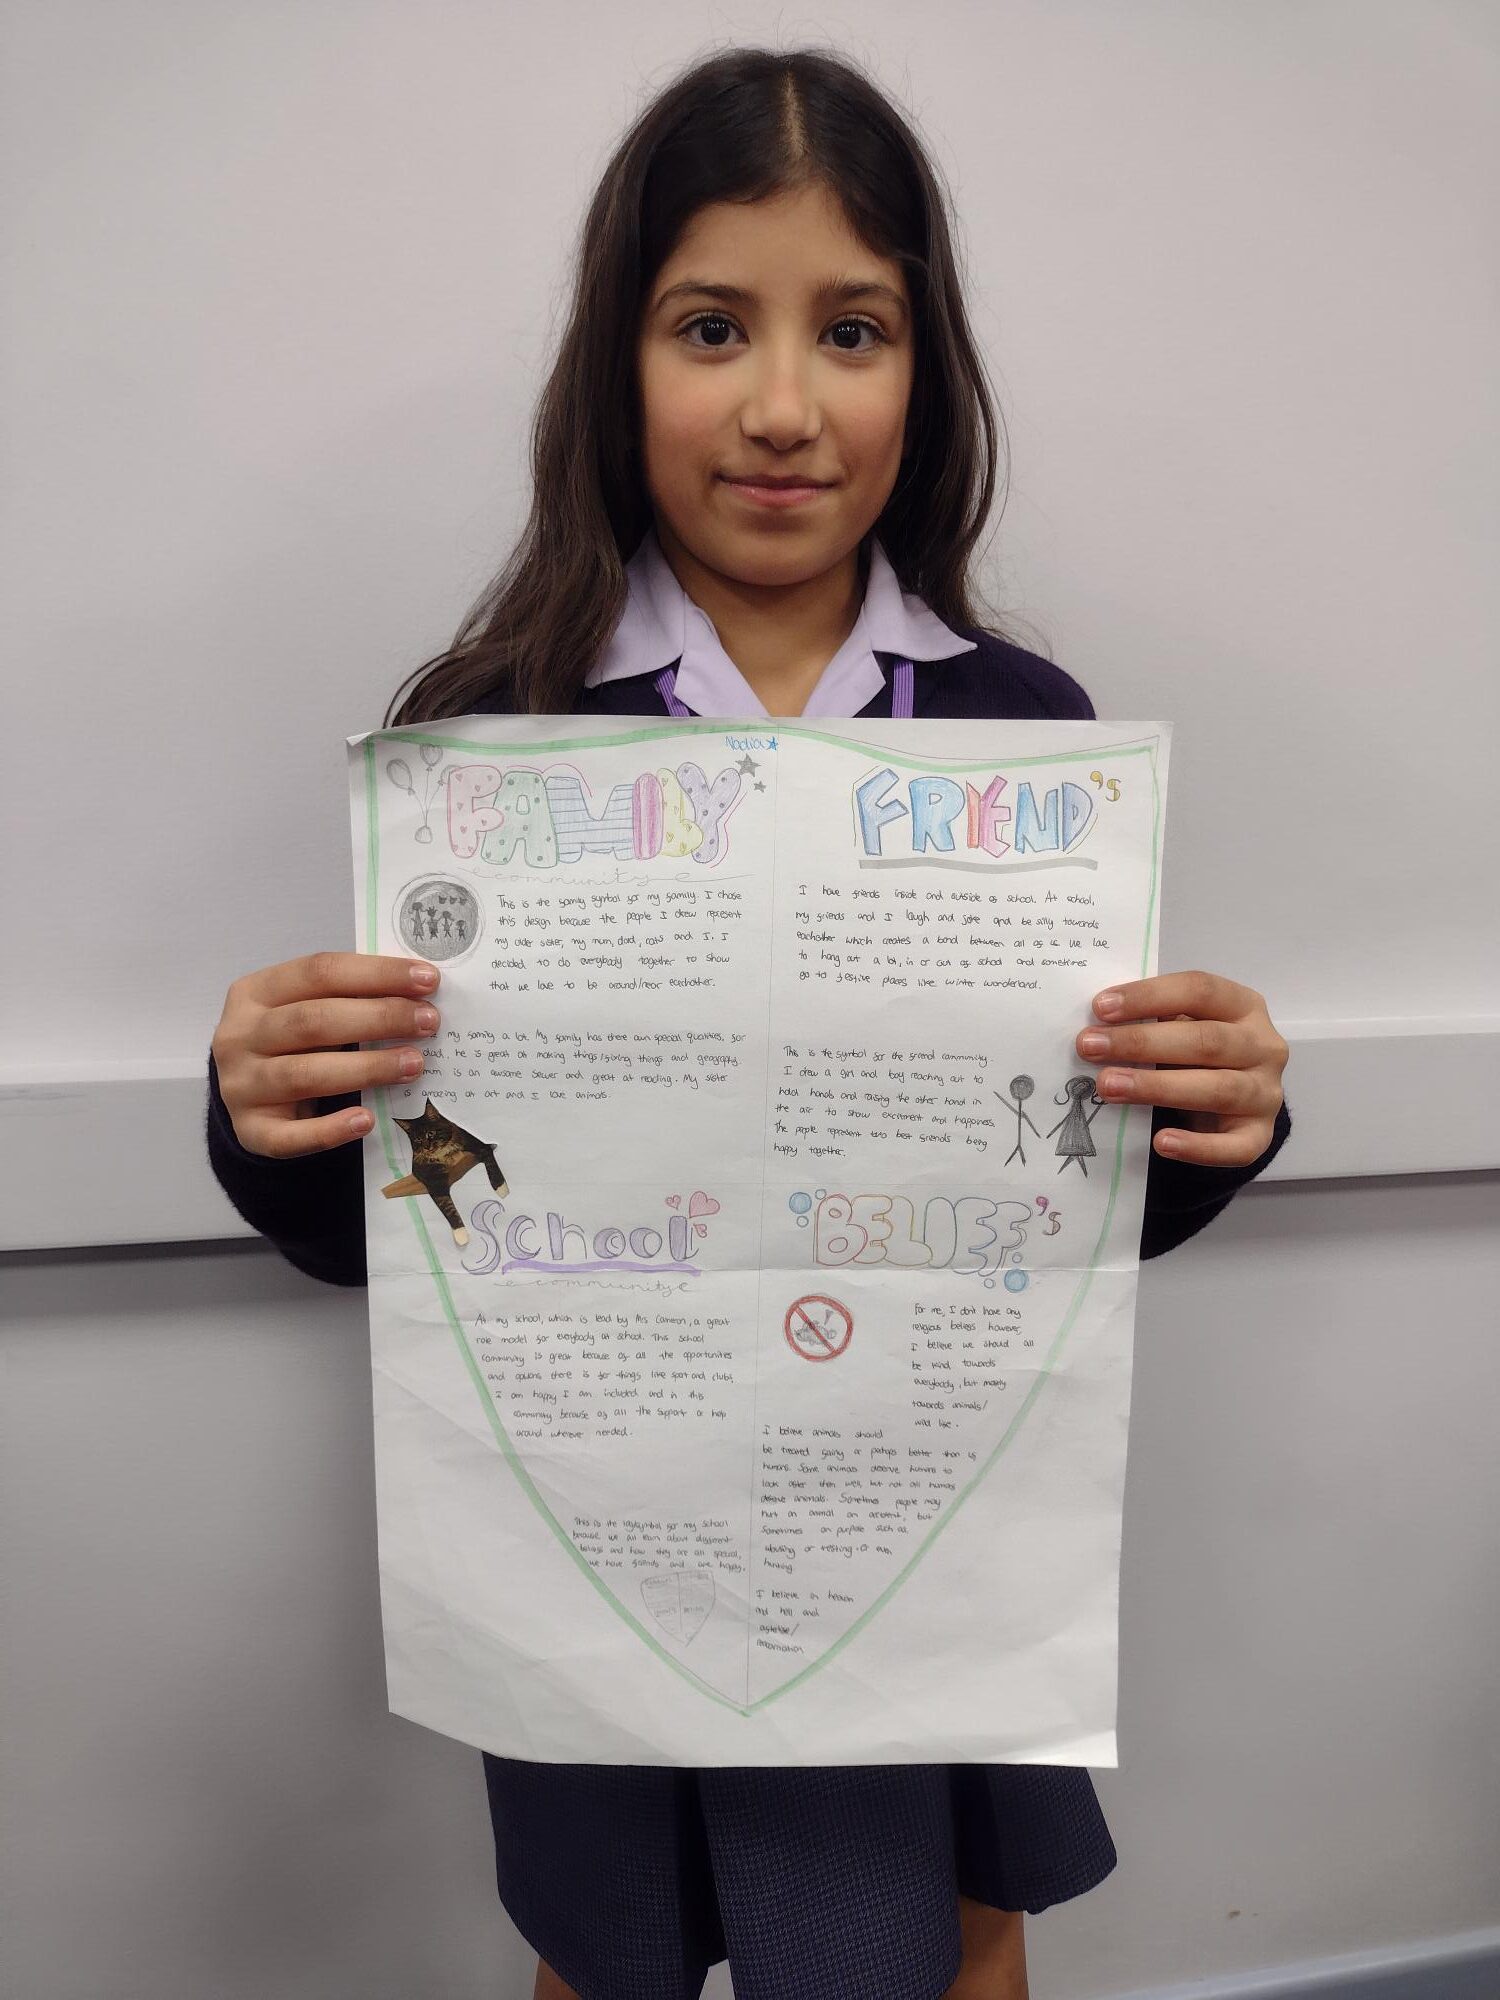 Nadia
FAMILY
community
This is the family symbol for my family. I chose
this design because the people I drew represent
my older sister, my mum, dad, cats and I. I
decided to do everybody together to show
that we love to be around/near eachother.
my family a lot. My family has there own special qualities, for
dad, he is great at making things/fixing things and geography.
mum is an awsome sewer and great at reading. My sister
is amazing at art and I love animals.
FRIEND's
I have friends inside and outside of school. At school,
my friends and I laugh and joke and be silly towards
eachother which creates a bond between all of us. We love
to hang out a lot, in or out of school and sometimes
go to festive places like winter wonderland.
This is the symbol for the friend community.
I drew a girl and boy reaching out to
hold hands and raising the other hand in
the air to show excitement and happiness.
The people represent two best friends being
happy together.
School
community
At my school, which is lead by Mrs Cameron, a great
role model for everybody at school. This school
community is great because of all the opportunities
and options there is for things like sport and clubs,
I am happy I am included and in this
community because of all the support or help
around wherever needed.
This is the symbol for my school
because we all learn about different
beliefs and how they are all special,
we have friends and are happy.
BELIEF's
For me, I don't have any
religious beliefs however,
I believe we should all
be kind towards
everybody, but mainly
towards animals/
wild life.
I believe animals should
be treated fairly or perhaps better than us
humans. Some animals deserve humans to
look after them well, but not all humans
deserve animals. Sometimes people may
hurt an animal on accident, but
sometimes on purpose such as,
abusing or testing. Or even
hunting.
I believe in heaven
and hell and
afterlife/
reincarnation